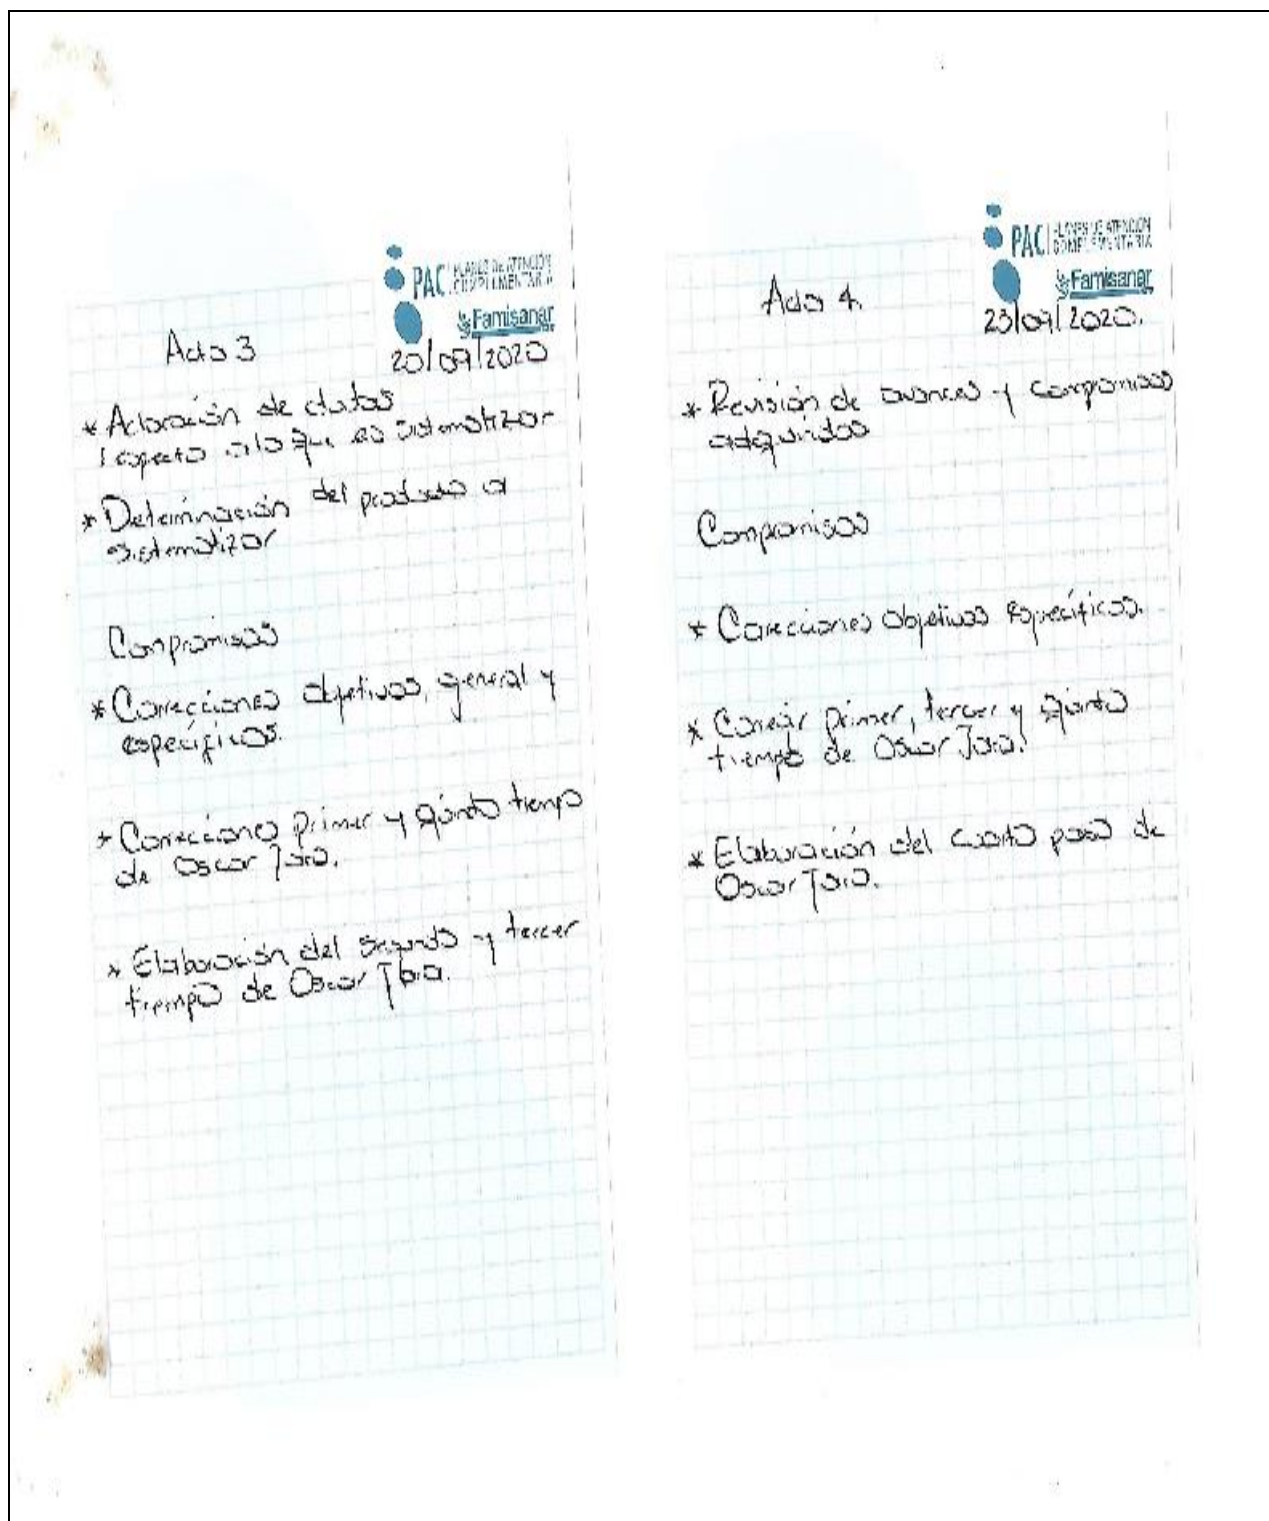 PAC PLANES DE ATENCIÓN
COMPLEMENTARIA
Famisanar
Acta 3
20/09/2020
* Acloración de dutos
respecto a lo que es sistematizar
* Determinación del producto a
sistematizar
Compromisos
* Correcciones objetivos, general y
específicos.
* Correcciones primer y quinto tiempo
de Oscar Jara.
* Elaboración del segundo y tercer
tiempo de Oscar Jara.
PAC PLANES DE ATENCIÓN
COMPLEMENTARIA
Famisanar
Acta 4.
23/09/2020.
* Revisión de avances y compromisos
adquiridos
Compromisos
* Correcciones objetivos específicos.
* Corregir primer, tercer y quinto
tiempo de Oscar Jara.
* Elaboración del cuarto paso de
Oscar Jara.